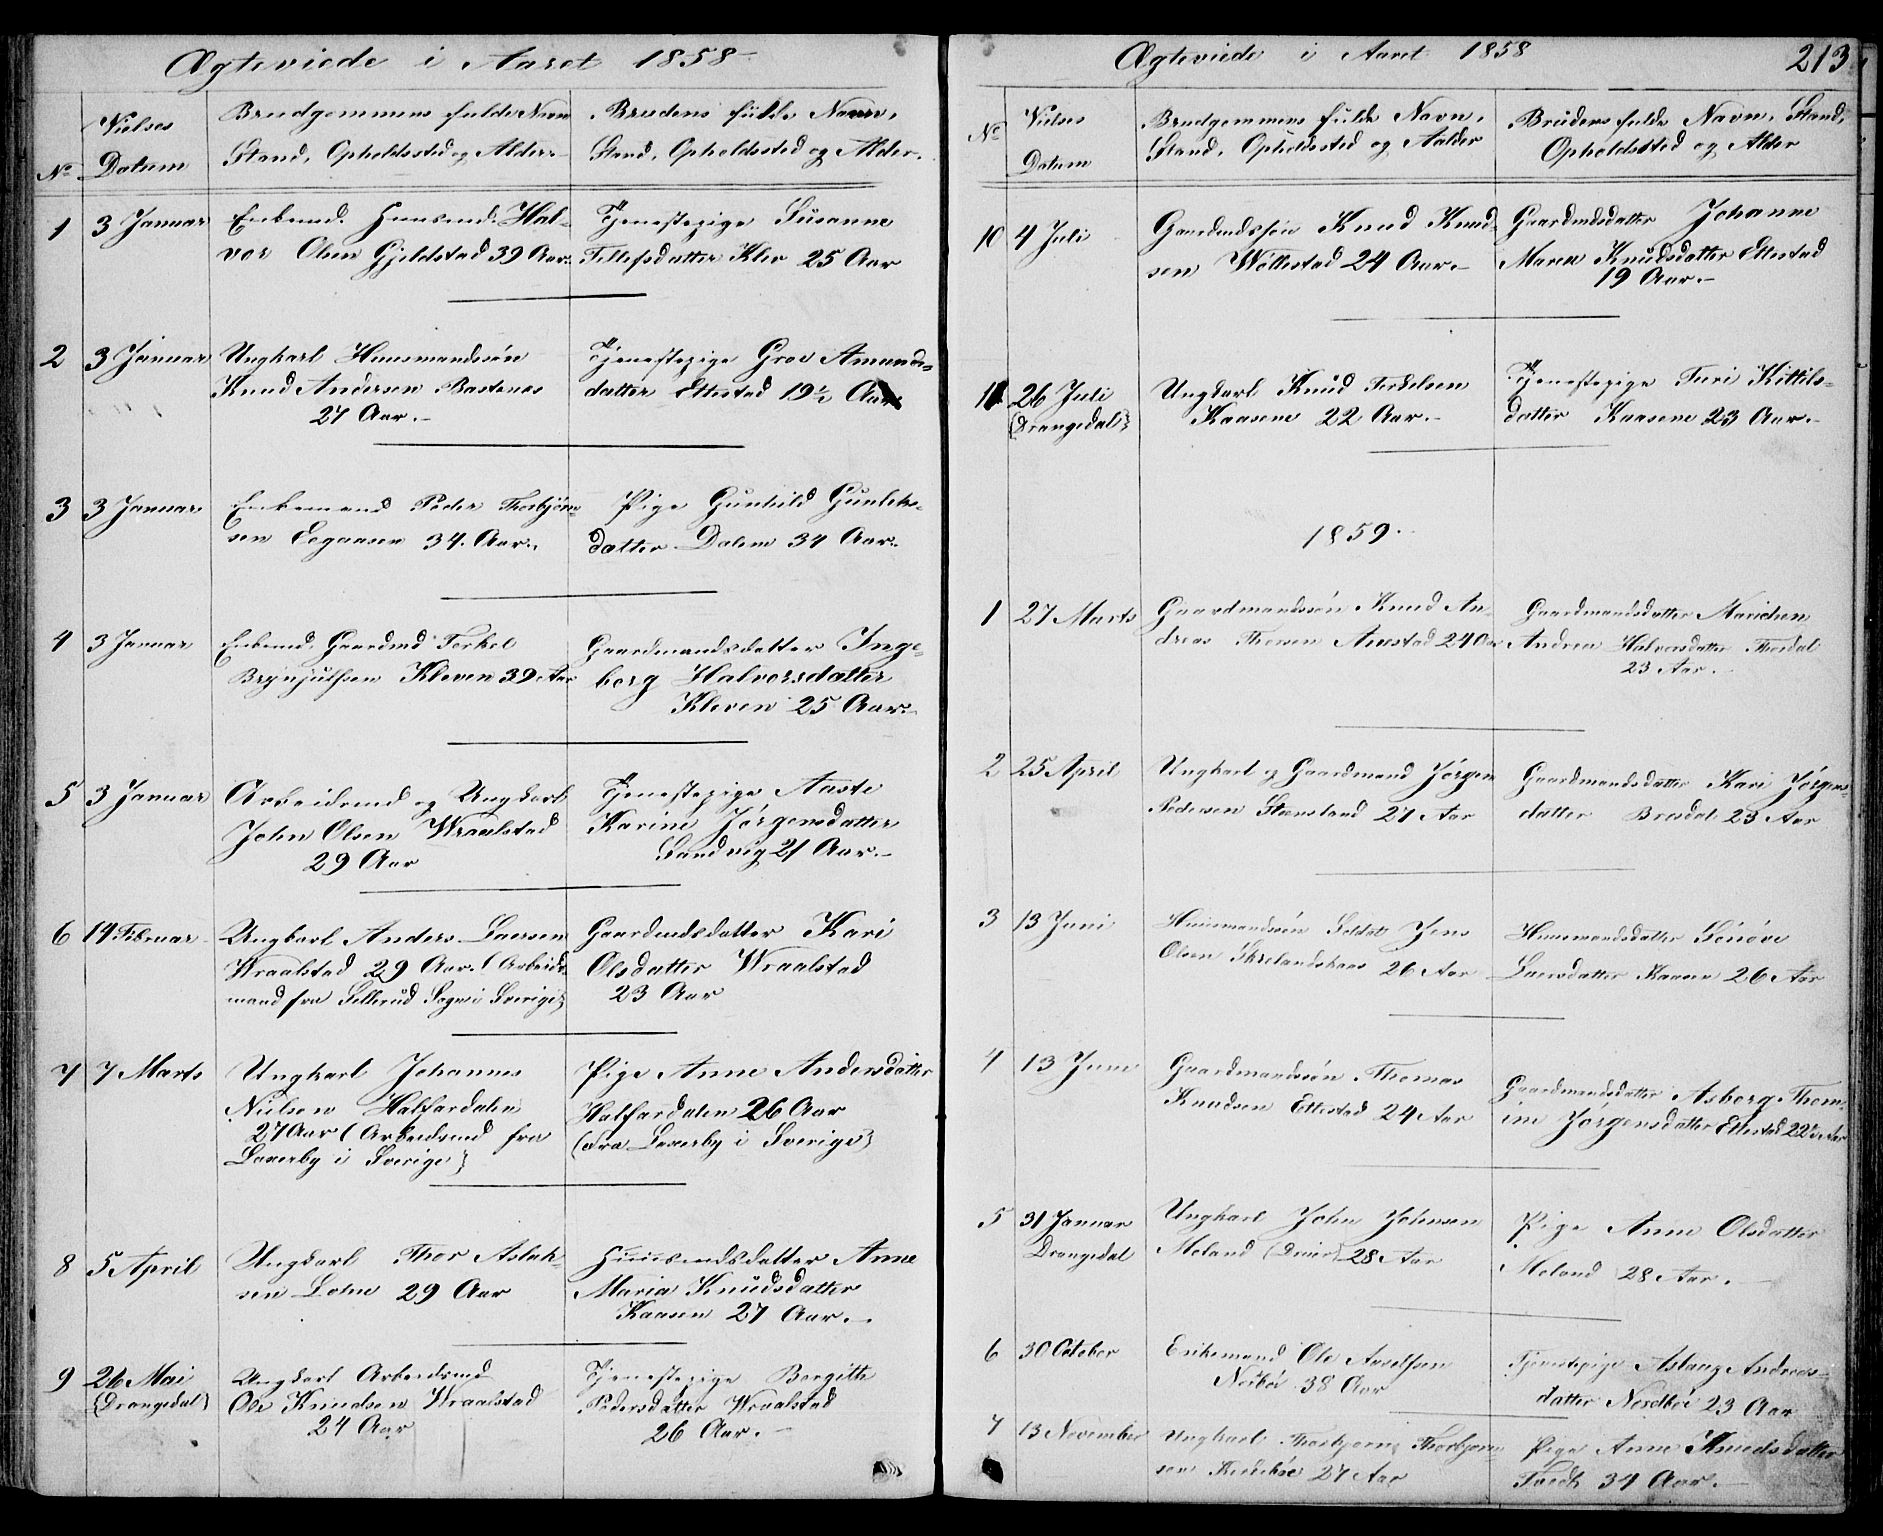 Ægteviede i Aaret 1858
No
Vielses
Datum
Brudgommens fulde Navn
Stand, Opholdssted og Alder
Brudens fulde Navn,
Stand, Opholdssted og Alder.
1 3 Januar
Enkemd. Huusmd. Hal-
vor Olsen Gjeldstad 39 Aar.
Tjenestepige Susanne
Tellefsdatter Klev 25 Aar
2 3 Januar
Ungkarl Huusmandssön
Knud Andersen Bastenes
27 Aar.
Tjenestepige Groe Amunds-
datter Ettestad 19½ Aar
3 3 Januar
Enkemand Peder Thorbjörn-
sen Eegaasen 34. Aar.
Pige Gunhild Gunleks-
datter Dalem 34 Aar.
4 3 Januar
Enkemd. Gaardmd Terkel
Brynjulfsen Kleven 39 Aar
Gaardmandsdatter Inge-
borg Halvorsdatter
Kleven 25 Aar.
5 3 Januar
Arbeidsmd og Ungkarl
John Olsen Wraalstad
29 Aar
Tjenestepige Aaste
Karine Jörgensdatter
Sandvig 21 Aar.
6 14 Februar
Ungkarl Anders Larsen
Wraalstad 29 Aar. (Arbeids-
mand fra Sillerud Sogn i Sverige)
Gaardmdsdatter Kari
Olsdatter Wraalstad
23 Aar
7 7 Marts
Ungkarl Johannes
Nielsen Halfardalen
27 Aar (Arbeidsmd fra
Laxerby i Sverige)
Pige Anne Andersdatter
Halfardalen 26 Aar
(fra Laxerby i Sverige)
8 5 April
Ungkarl Thor Aslak-
sen Lohne 29 Aar
Huusmdsdatter Anne
Maria Knudsdatter
Kaasen 27 Aar.
9 26 Mai
(Drangedal)
Ungkarl Arbeidsmd
Ole Knudsen Wraalstad
24 Aar
Tjenestepige Bergitte
Pedersdatter Wraalstad
26 Aar.
Ægteviede i Aaret 1858
213
No
Vielses
Datum
Brudgommens fulde Navn,
Stand, Opholdssted og Aalder
Brudens fulde Navn, Stand,
Opholdssted og Alder
10 4 Juli
Gaardmdssön Knud Knud-
sen Wöllestad 24 Aar.
Gaardmdsdatter Johanne
Maren Knudsdatter Ettestad
19 Aar.
11 26 Juli
(Drangedal)
Ungkarl Knud Terkelsen
Kaasene 22 Aar.
Tjenestepige Turi Kittils-
datter Kaasene 23 Aar.
1859.
1 27 Marts
Gaardmandssön Knud An-
dreas Thorsen Aanstad 24 Aar
Gaardmandsdatter Marichen
Andrea Halvorsdatter Thordal
23 Aar.
2 25 April
Ungkarl og Gaardmand Jörgen
Pedersen Steensland 27 Aar
Gaardmandsdatter Kari Jörgens-
datter Brosdal 23 Aar
3 13 Juni
Huusmandssön Soldat Jens
Olsen 26 Aar
Huusmandsdatter Sönöve
Larsdatter Kaasen 26 Aar
4 13 Juni
Gaardmandssön Thomas
Knudsen Ettestad 24 Aar
Gaardmandsdatter Asberg Thom-
ine Jörgensdatter Ettestad 22½ Aar
5 31 Januar
Drangedal
Ungkarl John Johnsen
Moland 28 Aar
Pige Anne Olsdatter
Moland 28 Aar.
6 30 October
Enkemand Ole Anvelsen
Nordbö 38 Aar
Tjenestepige Aslaug Andreas-
datter Nordböe 23 Aar
7 13 November
Ungkarl Thorbjörn Thorbjörn-
sen 27 Aar
Pige Anne Knudsdatter
34 Aar.